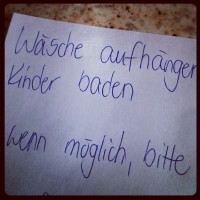 Wäsche aufhängen
Kinder baden
wenn möglich, bitte